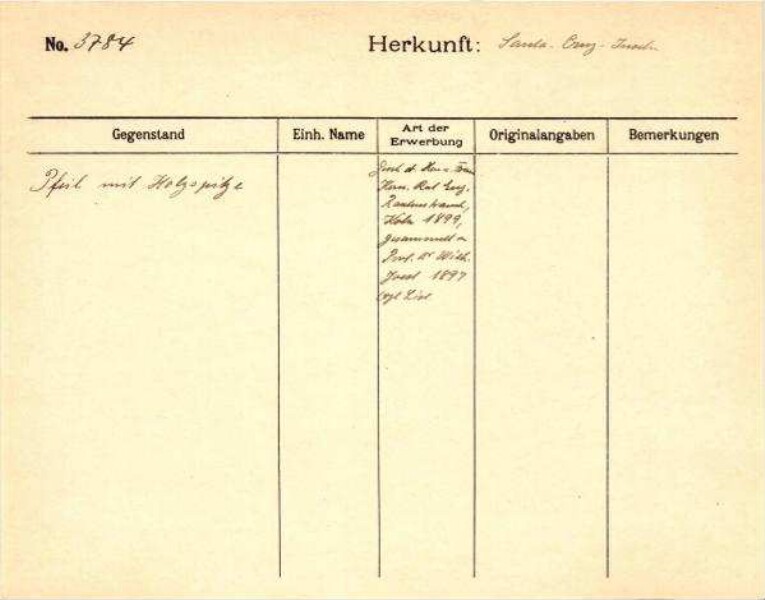 No. 3784 Herkunft: Santa. Cruz. Inseln
Gegenstand Einh. Name Art der Erwerbung Originalangaben Bemerkungen
Pfeil mit Holzspitze
Gesch. d. Her u. Frau
Kom. Rat Eug.
Rautenstrauch,
Köln 1899,
gesammelt v.
Prof. Dr Wilh.
Joest 1897